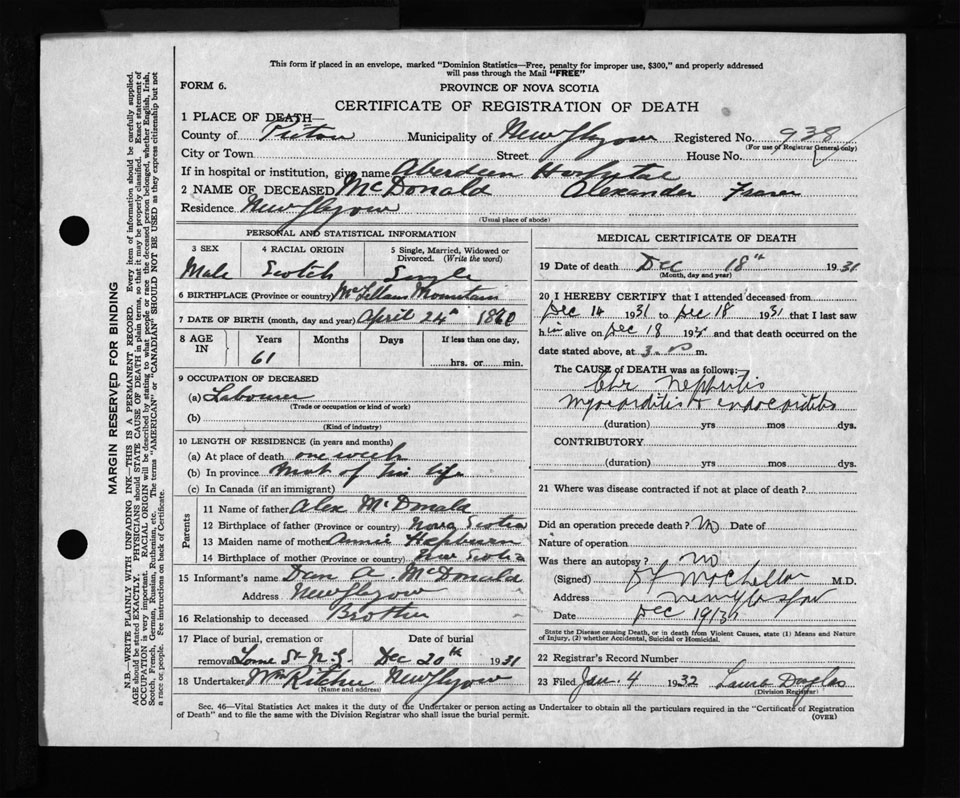 This form if placed in an envelope, marked "Dominion Statistics—Free, penalty for improper use, $300," and properly addressed
will pass through the Mail "FREE"
FORM 6.
PROVINCE OF NOVA SCOTIA
CERTIFICATE OF REGISTRATION OF DEATH
1 PLACE OF DEATH—
County of Pictou Municipality of New Glasgow Registered No. 938
(For use of Registrar General only)
City or Town Street House No.
If in hospital or institution, give name Aberdeen Hospital
2 NAME OF DECEASED McDonald Alexander Fraser
Residence New Glasgow
(Usual place of abode)
PERSONAL AND STATISTICAL INFORMATION
3 SEX 4 RACIAL ORIGIN 5 Single, Married, Widowed or
Divorced. (Write the word)
Male Scotch Single
6 BIRTHPLACE (Province or country) McLellans Mountain
7 DATE OF BIRTH (month, day and year) April 24th
8 AGE IN Years Months Days If less than one day,
61 hrs. or min.
9 OCCUPATION OF DECEASED
(a) Labourer
(Trade or occupation or kind of work)
(b)
(Kind of industry)
10 LENGTH OF RESIDENCE (in years and months)
(a) At place of death one week
(b) In province Most of his life
(c) In Canada (if an immigrant)
Parents
11 Name of father Alex McDonald
12 Birthplace of father (Province or country) Nova Scotia
13 Maiden name of mother Annie Hepburn
14 Birthplace of mother (Province or country) Nova Scotia
15 Informant's name Dan A McDonald
Address New Glasgow
16 Relationship to deceased Brother
17 Place of burial, cremation or Date of burial
removal Lorne St N.G. Dec 20th 1931
18 Undertaker Wm Ritchie New Glasgow
(Name and address)
MEDICAL CERTIFICATE OF DEATH
19 Date of death Dec 18th 1931
(Month, day and year)
20 I HEREBY CERTIFY that I attended deceased from
Dec 14 1931 to Dec 18 1931 that I last saw
him alive on Dec 18 1931 and that death occurred on the
date stated above, at 3 P m.
The CAUSE of DEATH was as follows:—
Chr Nephritis
Myocarditis + endocarditis
(duration) yrs mos dys.
CONTRIBUTORY
(duration) yrs mos dys.
21 Where was disease contracted if not at place of death?
Did an operation precede death? No Date of
Nature of operation
Was there an autopsy? No
(Signed) M.D.
Address New Glasgow
Date Dec 19/31
State the Disease causing Death, or in death from Violent Causes, state (1) Means and Nature
of Injury, (2) whether Accidental, Suicidal or Homicidal.
22 Registrar's Record Number
23 Filed Jan. 4 1932 Laura Douglas
(Division Registrar)
Sec. 46—Vital Statistics Act makes it the duty of the Undertaker or person acting as Undertaker to obtain all the particulars required in the "Certificate of Registration
of Death" and to file the same with the Division Registrar who shall issue the burial permit.
(OVER)
MARGIN RESERVED FOR BINDING
N.B.—WRITE PLAINLY WITH UNFADING INK—THIS IS A PERMANENT RECORD. Every item of information should be carefully supplied.
AGE should be stated EXACTLY. PHYSICIANS should STATE CAUSE OF DEATH in plain terms, so that it may be properly classified. Exact statement of
OCCUPATION is very important. RACIAL ORIGIN will be described by stating to what people or race the deceased person belonged, whether English, Irish,
Scotch, French, German, Russian, Ruthenian, etc. The terms "AMERICAN" or "CANADIAN" SHOULD NOT BE USED as they express citizenship but not
a race or people. Fee instructions on back of Certificate.